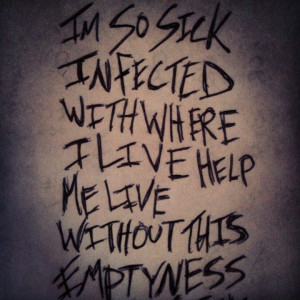 IM SO SICK
INFECTED
WITH WHERE
I LIVE HELP
ME LIVE
WITHOUT THIS
EMPTYNESS